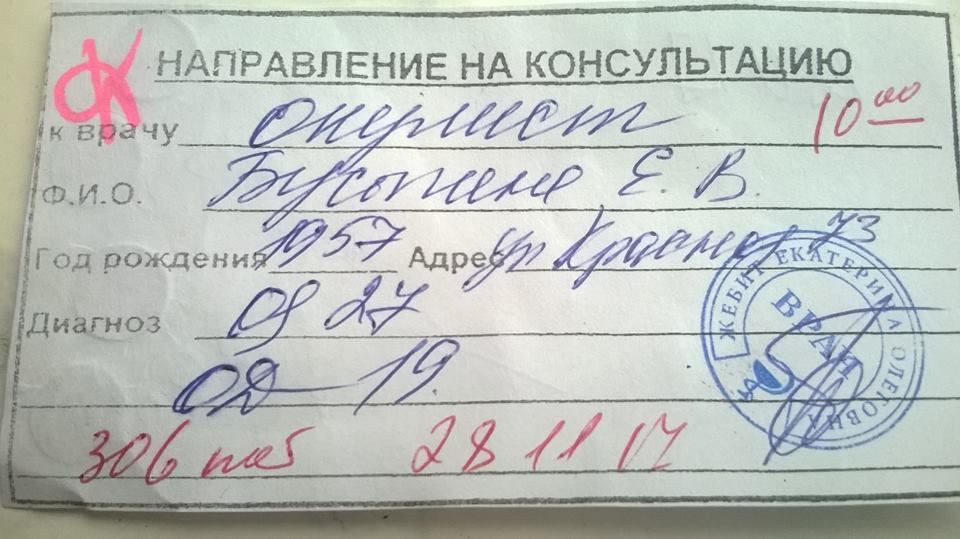 ОК
НАПРАВЛЕНИЕ НА КОНСУЛЬТАЦИЮ
к врачу окулист 10 00
Ф.И.О. Е. В.
Год рождения 1957 Адрес ул Красная 73
Диагноз 27
OD 19.
306 каб 28 11 17
ЖЕБИТ ЕКАТЕРИНА ОЛЕГОВНА
ВРАЧ